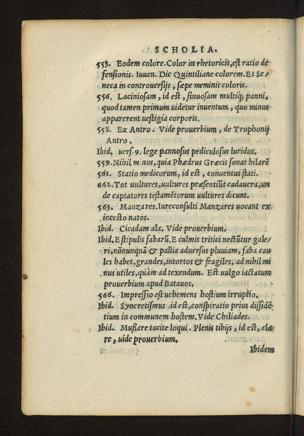 SCHOLIA.
553. Eodem colore. Color in rhetoricis, est ratio de
fensionis. Iuuen. Dic Quintiliane colorem. Et Se-
neca in controuersijs, sæpe meminit coloris.
556. Laciniosam, id est, sinuosam multisq́; panni,
quod tamen primum uidetur inuentum, quo minus
apparerent uestigia corporis.
558. Ex Antro. Vide prouerbium, de Trophonij
Antro.
Ibid. uers. 9. lege pannosus pediculosus luridus.
559. Nihil minus, quia Phædrus Græcis sonat hilarē
561. Statio medicorum, id est, conuentus stati.
662. Tot uultures, uultures præsentiūt cadauera, un
de captatores testamētorum uultures dicunt.
563. Manzares, Iureconsulti Manzares uocant ex
incesto natos.
Ibid. Cicadam ala. Vide prouerbium.
Ibid, E stipulis fabarū. E culmis tritici nectūtur gale-
ri, nōnunquā & palliæ aduersus pluuiam, faba cau
les habet, grandes, intortos & fragiles, ad nihil mi
nus utiles, quàm ad texendum. Est uulgo iactatum
prouerbium apud Batauos.
566. Impressio est uehemens hostium irruptio.
Ibid. Syncretismus id est, conspiratio prius dissidē-
tium in communem hostem. Vide Chiliades.
Ibid. Mussare tacite loqui. Plenis tibijs, id est, cla-
re, uide prouerbium.
Ibidem